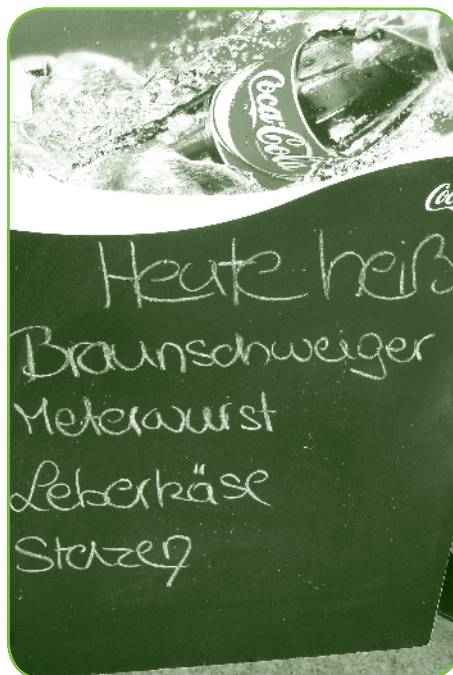 Coca-Cola
Heute heiß
Braunschweiger
Meterwurst
Leberkäse
Stelzen